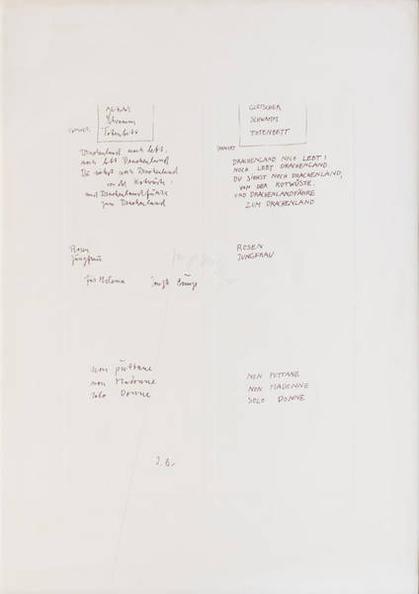 Gletscher
Schwamm
Totenbett
Drachenland noch lebt!
noch lebt Drachenland
Du siehst noch Drachenland
von der Kotwüste.
und Drachenlandfähre
zum Drachenland
Rosen
Jungfrau
Für
non puttane
non Madonne
solo Donne
J. B.
GLETSCHER
SCHWAMM
TOTENBETT
DRACHENLAND NOCH LEBT!
NOCH LEBT DRACHENLAND
DU SIEHST NOCH DRACHENLAND,
VON DER KOTWÜSTE.
UND DRACHENLANDFÄHRE
ZUM DRACHENLAND
ROSEN
JUNGFRAU
NON PUTTANE
NON MADONNE
SOLO DONNE